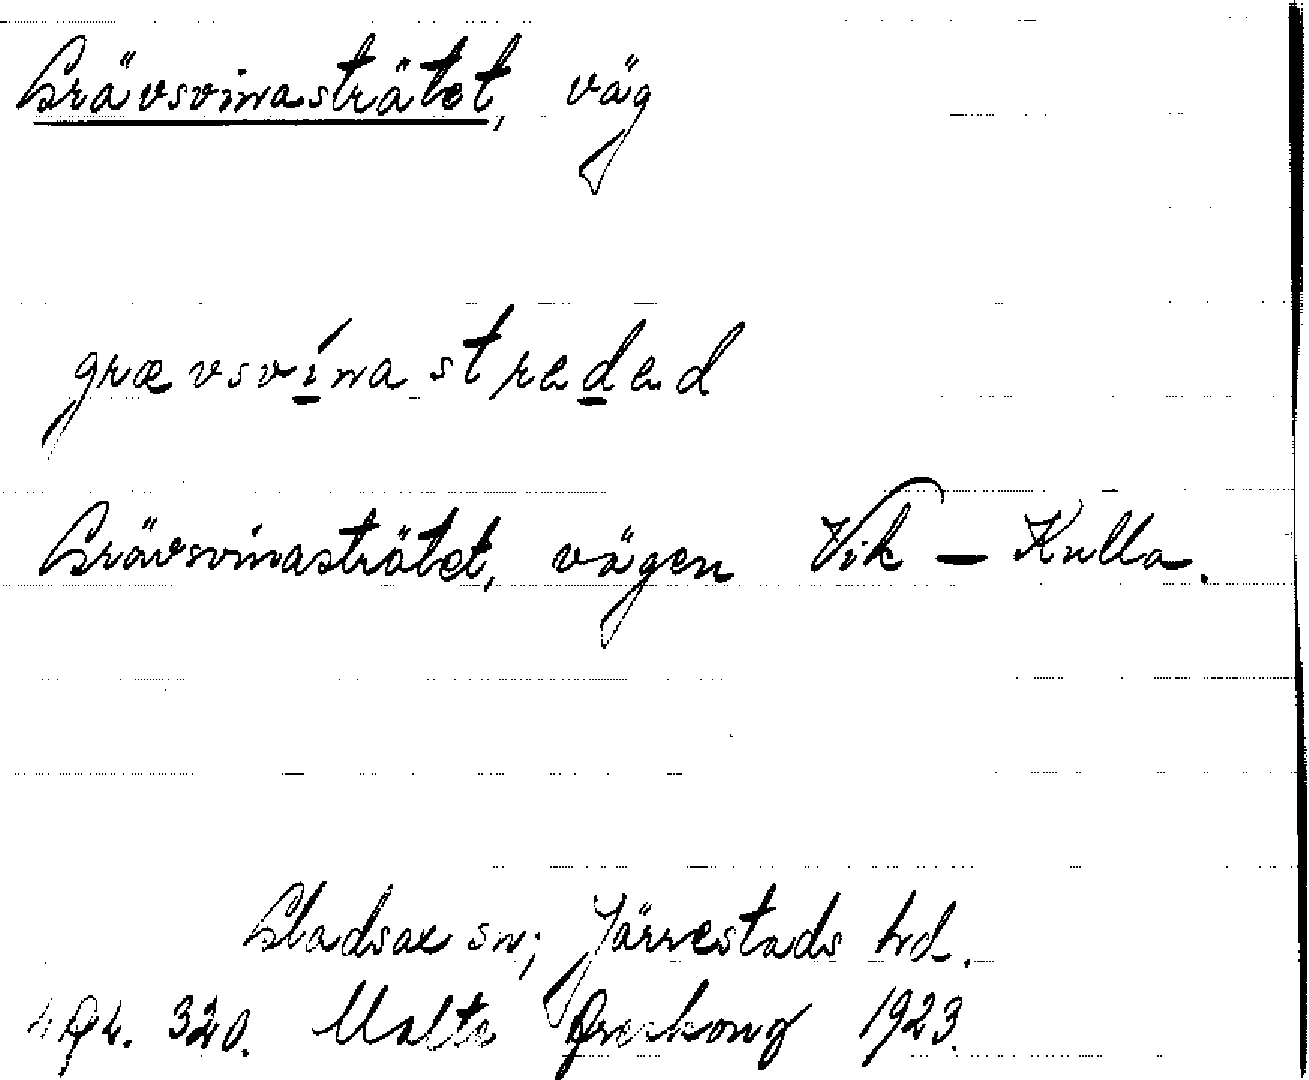 Grävsvinasträtet, väg
grævsvínastreded
Grävsvinasträtet, vägen Vik – Kulla.
Gladsax sn; Järrestads hd.
320. Malte 1923.